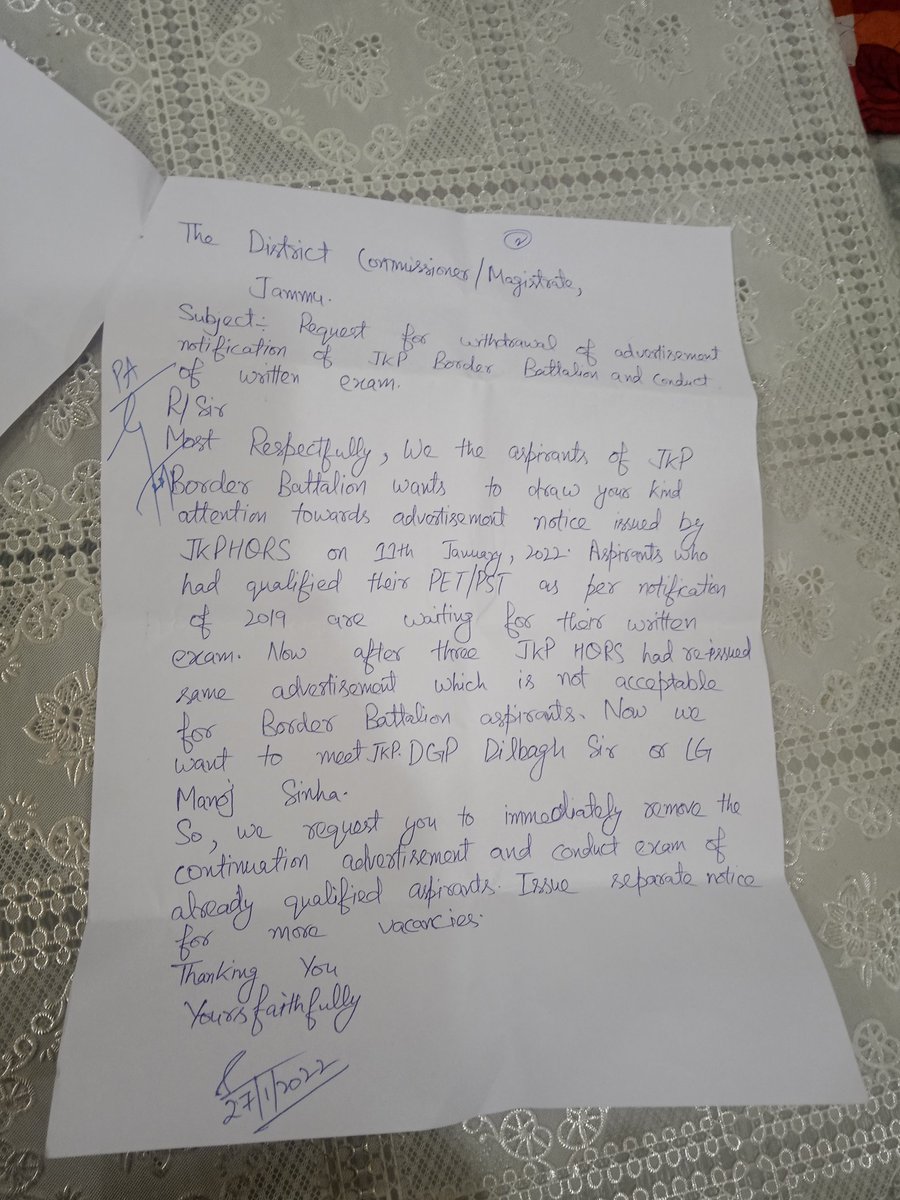 2
The District Commissioner/Magistrate,
Jammu.
Subject:- Request for withdrawal of advertisement
notification of JKP Border Battalion and conduct
of written exam.
PA
R/Sir
Most Respectfully, We the aspirants of JKP
Border Battalion wants to draw your kind
attention towards advertisement notice issued by
JKPHQRS on 11th January, 2022. Aspirants who
had qualified their PET/PST as per notification
of 2019 are waiting for their written
exam. Now after three JKP HQRS had re-issued
same advertisement which is not acceptable
for Border Battalion aspirants. Now we
want to meet JKP. DGP Dilbagh Sir or LG
Manoj Sinha.
So, we request you to immediately remove the
continuation advertisement and conduct exam of
already qualified aspirants. Issue separate notice
for more vacancies.
Thanking You
Yours faithfully
27/1/2022